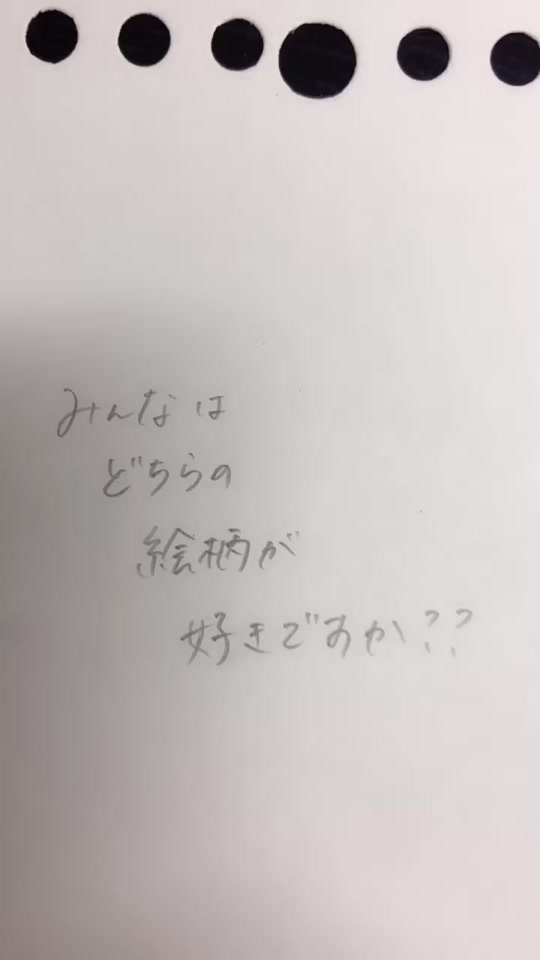 みんなは
どちらの
絵柄が
好きですか??